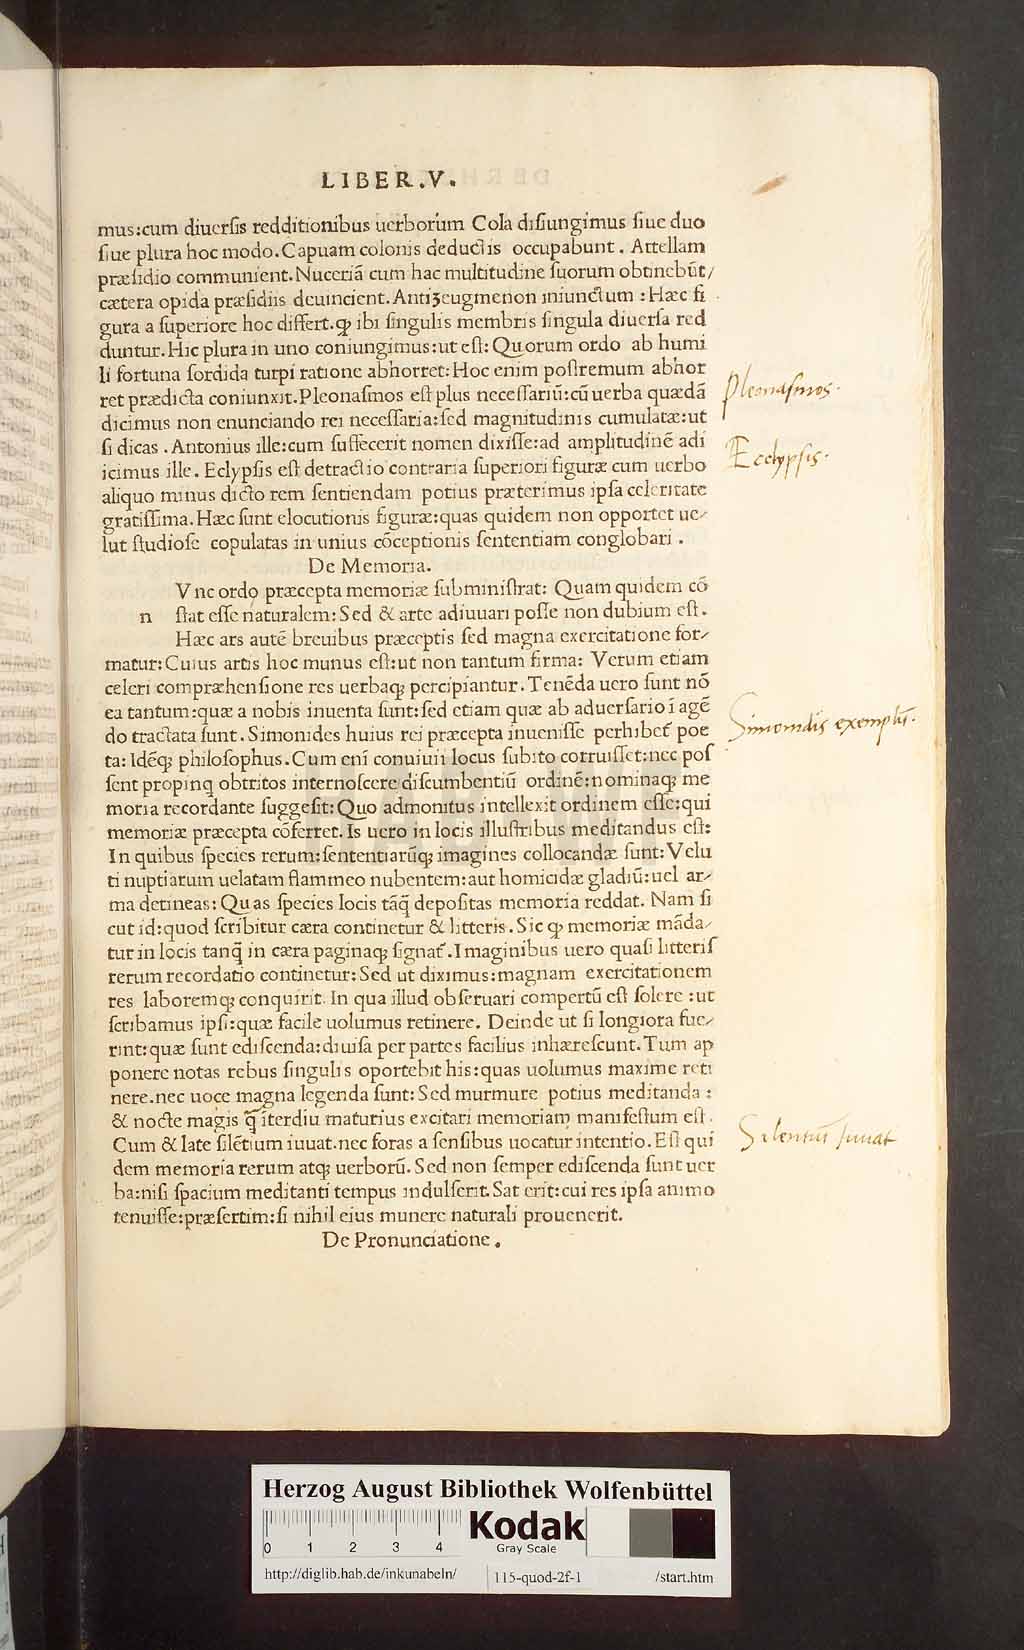 LIBER.V.
mus:cum diuersis redditionibus uerborum Cola disiungimus siue duo
siue plura hoc modo.Capuam colonis deductis occupabunt. Artellam
præsidio communient.Nuceriā cum hac multitudine suorum obtinebūt/
cætera opida præsidiis deuincient.Antiʒeugmenon iniunctum:Hæc fi
gura a superiore hoc differt.ꝙ ibi singulis membris singula diuersa red
duntur.Hic plura in uno coniungimus:ut est:Quorum ordo ab humi
li fortuna sordida turpi ratione abhorret:Hoc enim postremum abhor
ret prædicta coniunxit.Pleonasmos est plus necessariū:cū uerba quædā
dicimus non enunciando rei necessaria:sed magnitudinis cumulatæ:ut
si dicas.Antonius ille:cum suffecerit nomen dixisse:ad amplitudinē adi
icimus ille. Eclypsis est detractio contraria superiori figuræ cum uerbo
aliquo minus dicto rem sentiendam potius præterimus ipsa celeritate
gratissima.Hæc sunt elocutionis figuræ:quas quidem non opportet ue⸗
lut studiose copulatas in unius cōceptionis sententiam conglobari.
De Memoria.
Vnc ordo præcepta memoriæ subministrat: Quam quidem cō
n stat esse naturalem: Sed & arte adiuuari posse non dubium est.
Hæc ars autē breuibus præceptis sed magna exercitatione for⸗
matur:Cuius artis hoc munus est:ut non tantum firma: Verum etiam
celeri compræhensione res uerbaq; percipiantur.Tenēda uero sunt nō
ea tantum:quæ a nobis inuenta sunt:sed etiam quæ ab aduersario ī agē
do tractata sunt.Simonides huius rei præcepta inuenisse perhibet̄ poe
ta:Idēq; philosophus.Cum enī conuiuii locus subito corruisset:nec pos
sent propinq̄ obtritos internoscere discumbentiū ordinē:nominaq; me
moria recordante suggesit:Quo admonitus intellexit ordinem esse:qui
memoriæ præcepta cōferret. Is uero in locis illustribus meditandus est:
In quibus species rerum:sententiarūq; imagines collocandæ sunt:Velu
ti nuptiarum uelatam flammeo nubentem:aut homicidæ gladiū:uel ar⸗
ma detineas:Quas species locis tāq̄ depositas memoria reddat. Nam si
cut id:quod scribitur cæra continetur & litteris.Sic ꝙ memoriæ māda⸗
tur in locis tanq̄ in cæra paginaq; signat̄.Imaginibus uero quasi litteris
rerum recordatio continetur:Sed ut diximus:magnam exercitationem
res laboremq; conquirit.In qua illud obseruari compertū est solere:ut
scribamus ipsi:quæ facile uolumus retinere. Deinde ut si longiora fue⸗
rint:quæ sunt ediscenda:diuisa per partes facilius inhærescunt.Tum ap
ponere notas rebus singulis oportebit his:quas uolumus maxime reti
nere.nec uoce magna legenda sunt:Sed murmure potius meditanda:
& nocte magis q̄ iterdiu maturius excitari memoriam manifestum est.
Cum & late silētium iuuat.nec foras a sensibus uocatur intentio.Est qui
dem memoria rerum atq; uerborū. Sed non semper ediscenda sunt uer
ba:nisi spacium meditanti tempus indulserit.Sat erit:cui res ipsa animo
tenuisse:præsertim:si nihil eius munere naturali prouenerit.
De Pronunciatione.
Pleonasmos.
Ecclypsis.
Simonidis exemplū.
Silentiū iuuat
HAB-WF
Herzog August Bibliothek Wolfenbüttel
0 1 2 3 4
Kodak
Gray Scale
http://diglib.hab.de/inkunabeln/ 115-quod-2f-1 /start.htm